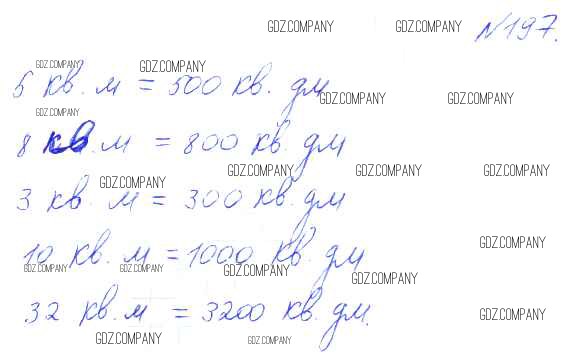 GDZ.COMPANY GDZ.COMPANY №197.
GDZ.COMPANY GDZ.COMPANY
5 кв. м = 500 кв. дм
GDZ.COMPANY GDZ.COMPANY
GDZ.COMPANY
8 кв. м = 800 кв. дм
GDZ.COMPANY GDZ.COMPANY GDZ.COMPANY
GDZ.COMPANY
3 кв. м = 300 кв. дм
GDZ.COMPANY
10 кв. м = 1000 кв. дм
GDZ.COMPANY GDZ.COMPANY GDZ.COMPANY
GDZ.COMPANY
32 кв. м = 3200 кв. дм.
GDZ.COMPANY
GDZ.COMPANY GDZ.COMPANY